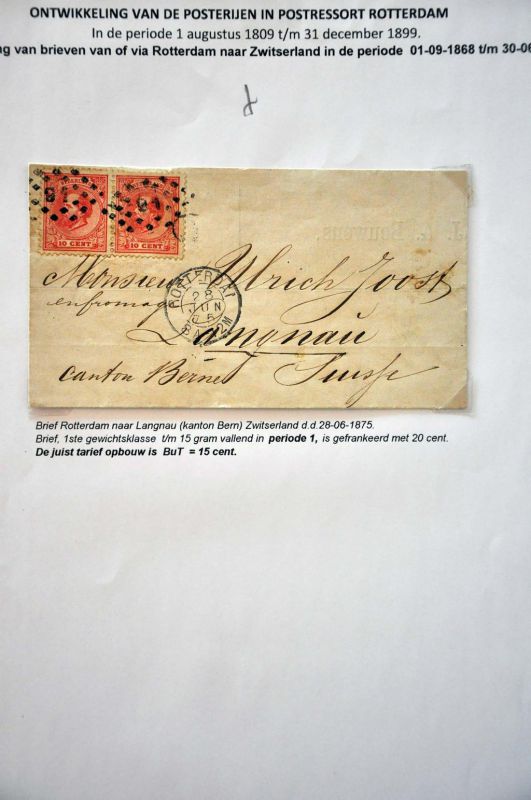 ONTWIKKELING VAN DE POSTERIJEN IN POSTRESSORT ROTTERDAM
In de periode 1 augustus 1809 t/m 31 december 1899.
van brieven van of via Rotterdam naar Zwitserland in de periode 01-09-1868 t/m 30-06
10 CENT
10 CENT
91
Bouwens,
Monsieur Ulrich Joost
en fromage
ROTTERDAM
28
JUN
75
Langnau
canton Berne Suisse
Brief Rotterdam naar Langnau (kanton Bern) Zwitserland d.d.28-06-1875.
Brief, 1ste gewichtsklasse t/m 15 gram vallend in periode 1, is gefrankeerd met 20 cent.
De juist tarief opbouw is BuT = 15 cent.